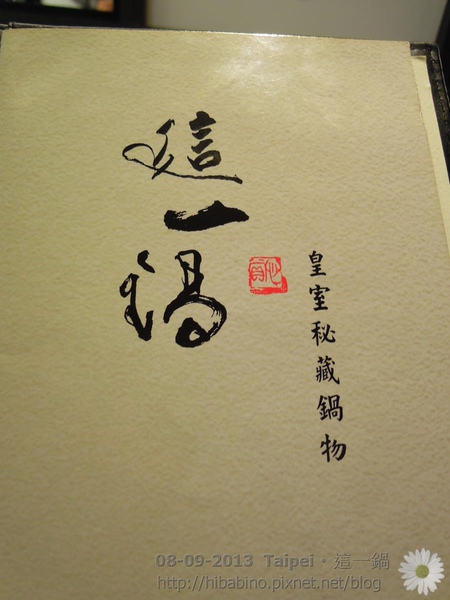 這一鍋
皇室秘藏鍋物
08-09-2013 Taipei · 這一鍋
http://hibabino.pixnet.net/blog